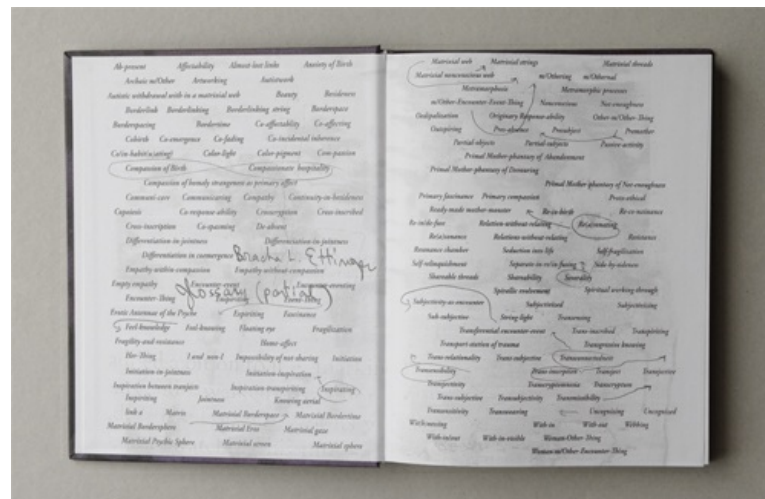 Ab-present Affectability Almost-lost links Anxiety of Birth
Archaic m/Other Artworking Autistwork
Autistic withdrawal with-in a matrixial web Beauty Besideness
Borderlink Borderlinking Borderlinking string Borderspace
Borderspacing Bordertime Co-affectability Co-affecting
Cobirth Co-emergence Co-fading Co-incidental inherence
Co/in-habit(u)ating) Color-light Color-pigment Com-passion
Compassion of Birth Compassionate hospitality
Compassion of homely strangeness as primary affect
Communi-care Communicaring Compathy Continuity-in-besideness
Copoiesis Co-response-ability Crosscryption Cross-inscribed
Cross-inscription Co-spasming De-absent
Differentiation in jointness Differenciation in jointness
Differentiation in coemergence Bracha L. Ettinger
Empathy within compassion Empathy without compassion
Empty empathy Encounter-event Encounter-eventing
glossary (partial)
Encounter-Thing Event-Thing
Erotic Antennae of the Psyche Espiriting Fascinance
Feel-knowledge Feel-knowing Floating eye Fragilization
Fragility and resistance Home-affect
Her-Thing I and non-I Impossibility of not-sharing Initiation
Initiation-in-jointness Initiation-inspiration
Inspiration between transjects Inspiration-transpiriting Inspirating
Inspiriting Jointness Knowing aerial
link a Matrix Matrixial Borderspace Matrixial Bordertime
Matrixial Bordersphere Matrixial Eros Matrixial gaze
Matrixial Psychic Sphere Matrixial screen Matrixial sphere
Matrixial web Matrixial strings Matrixial threads
Matrixial nonconscious web m/Othering m/Othernal
Metramorphosis Metramorphic processes
m/Other-Encounter-Event-Thing Nonconscious Not-enoughness
Oedipalization Originary Response-ability Other-m/Other-Thing
Outspiring Pres-absence Presubject Premother
Partial-objects Partial-subjects Passive-activity
Primal Mother-phantasy of Abandonment
Primal Mother-phantasy of Devouring
Primal Mother-phantasy of Not-enoughness
Primary fascinance Primary compassion Proto-ethical
Ready-made mother-monster Re-in-birth Re-co-naissance
Re-in/de-fuse Relation-without-relating Re(a)sonating
Re(a)sonance Relations-without-relating Resistance
Resonance chamber Seduction into life Self-fragilisation
Self-relinquishment Separate-in-re/in-fusing Side-by-sideness
Shareable threads Shareability Severality
Spiralic evolvement Spiritual working through
Subjectivity-as-encounter Subjectivized Subjectivizing
Sub-subjective String-light Transensing
Transferential encounter-event Trans-inscribed Transpiriting
Transport-station of trauma Transgressive knowing
Trans-relationality Trans-subjective Transconnectedness
Transmobility Trans-inscription Transject Transjective
Transjectivity Transcryptomnesia Transcryption
Trans-subjective Transubjectivity Transmissibility
Transensitivity Transwearing Uncognizing Uncognized
With-nessing With-in With-out Webbing
With-in/out With-in-visible Woman-Other-Thing
Woman-m/Other-Encounter-Thing